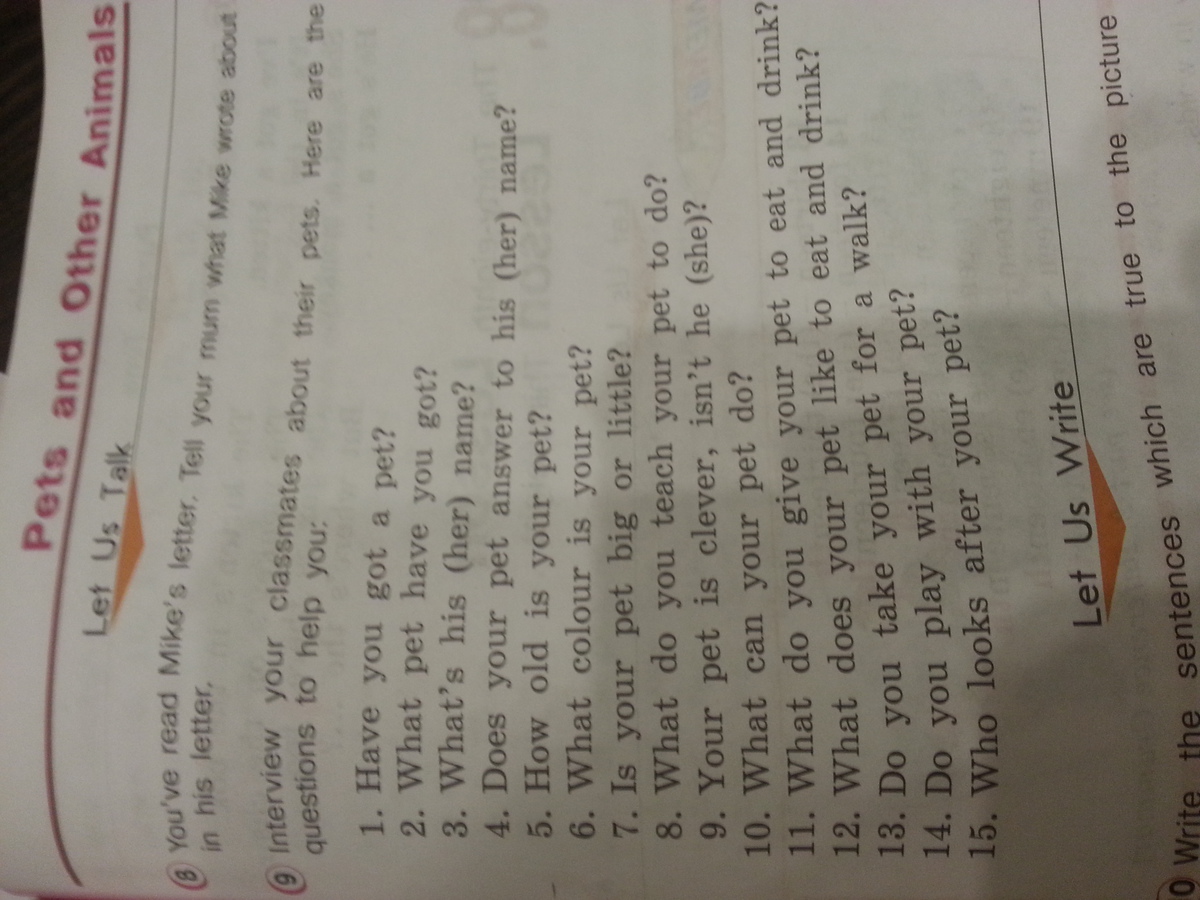 Pets and Other Animals
Let Us Talk
8 You've read Mike's letter. Tell your mum what Mike wrote about
in his letter.
9 Interview your classmates about their pets. Here are the
questions to help you:
1. Have you got a pet?
2. What pet have you got?
3. What's his (her) name?
4. Does your pet answer to his (her) name?
5. How old is your pet?
6. What colour is your pet?
7. Is your pet big or little?
8. What do you teach your pet to do?
9. Your pet is clever, isn't he (she)?
10. What can your pet do?
11. What do you give your pet to eat and drink?
12. What does your pet like to eat and drink?
13. Do you take your pet for a walk?
14. Do you play with your pet?
15. Who looks after your pet?
Let Us Write
0 Write the sentences which are true to the picture